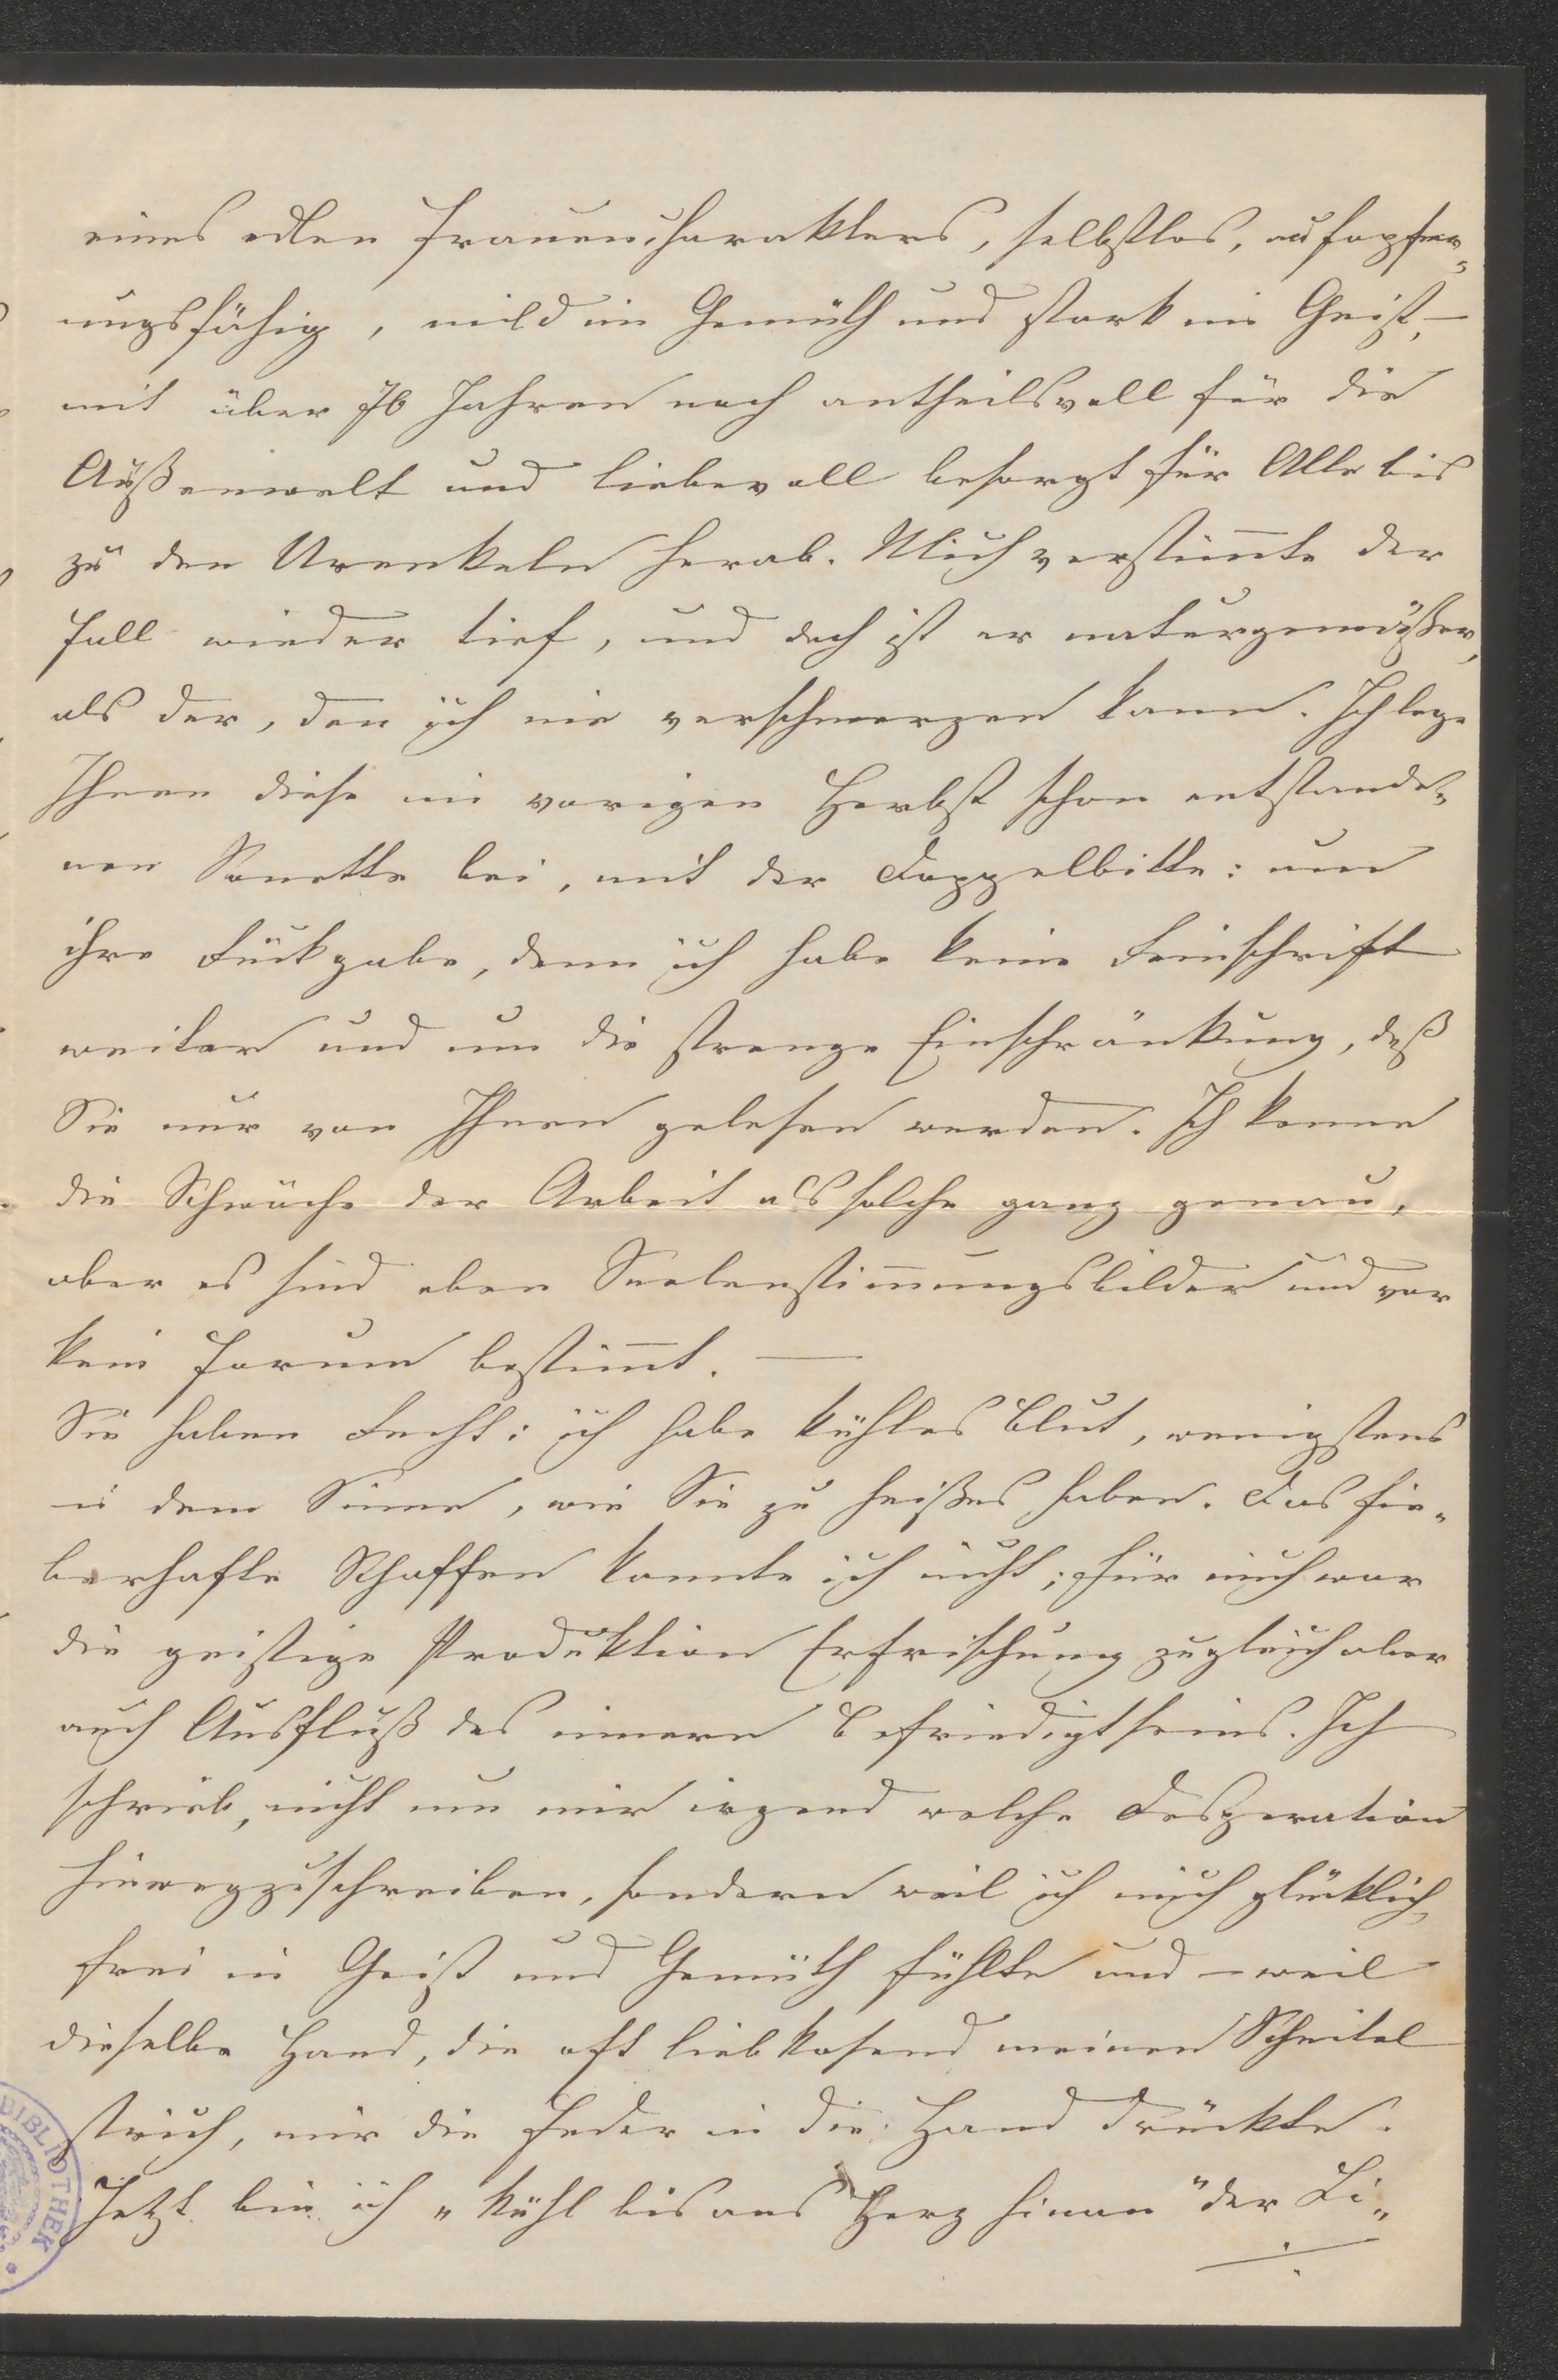 eines edlen Frauencharakters, selbstlos, aufopfer-
ungsfähig, mild im Gemüth und stark im Geist, –
mit über 76 Jahren noch antheilsvoll für die
Außenwelt und liebevoll besorgt für Alle bis
zu den Urenkeln herab. Mich verstimmte der
Fall wieder tief, und doch ist er naturgemäßer,
als der, den ich nie verschmerzen kann. Ich lege
Ihnen diese im vorigen Herbst schon entstande-
nen Sonette bei, mit der Doppelbitte: um
ihre Rückgabe, denn ich habe keine Reinschrift
weiter und um die strenge Einschränkung, daß
Sie nur von Ihnen gelesen werden. Ich kenne
die Schwäche der Arbeit als solche ganz genau,
aber es sind eben Seelenstimmungsbilder und vor
kein Forum bestimmt. —
Sie haben Recht: ich habe kühles Blut, wenigstens
in dem Sinne, wie Sie zu heißes haben. Das fie-
berhafte Schaffen kannte ich nicht; für mich war
die geistige Produktion Erfrischung zugleich aber
auch Ausfluß des innern Befriedigtseins. Ich
schrieb, nicht um mir irgend welche Desperation
hinwegzuschreiben, sondern weil ich mich glücklich,
frei in Geist und Gemüth fühlte und – weil
dieselbe Hand, die oft liebkosend meinen Scheitel
strich, mir die Feder in die Hand drückte.
Jetzt bin ich „kühl bis ans Herz hinan" der Li-
BIBLIOTHEK